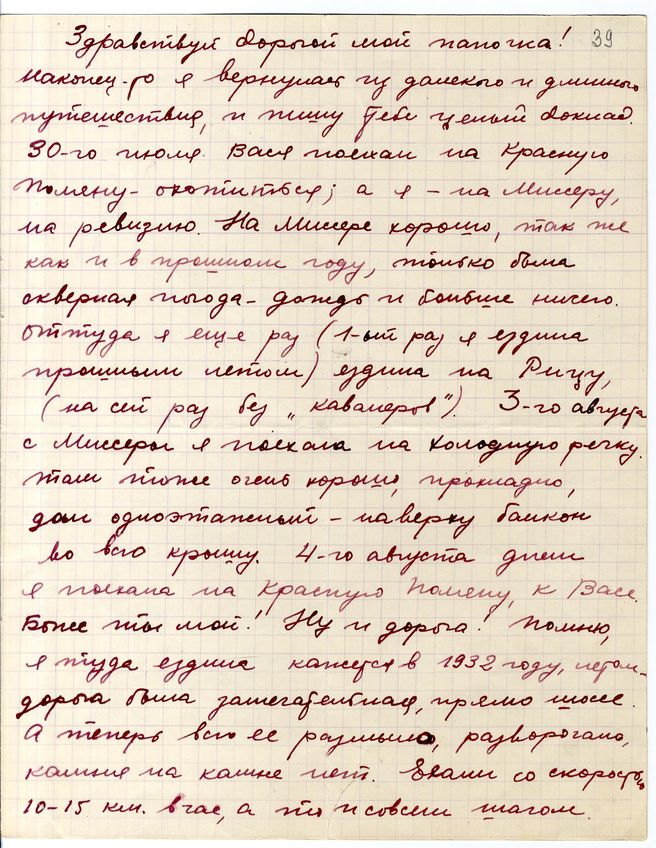 Здравствуй дорогой мой папочка! 39
Наконец-то я вернулась из далекого и длинного
путешествия, и пишу тебе целый доклад.
30-го июля Вася поехал на Красную
Поляну - охотиться; а я - на Мюссеру,
на ревизию. На Мюссере хорошо, так же
как и в прошлом году, только была
скверная погода - дождь и больше ничего.
Оттуда я еще раз (1-ый раз я ездила
прошлым летом) ездила на Рицу,
(на сей раз без „кавалеров"). 3-го августа
с Мюссеры я поехала на холодную речку.
Там тоже очень хорошо, прохладно,
дом одноэтажный - наверху балкон
во всю крышу. 4-го августа днем
я поехала на Красную Поляну, к Васе.
Боже ты мой! Ну и дорога! Помню,
я туда ездила кажется в 1932 году, летом -
дорога была замечательная, прямо шоссе.
А теперь всю ее размыло, разворочало,
камня на камне нет. Ехали со скоростью
10-15 км. в час, а то и совсем шагом.